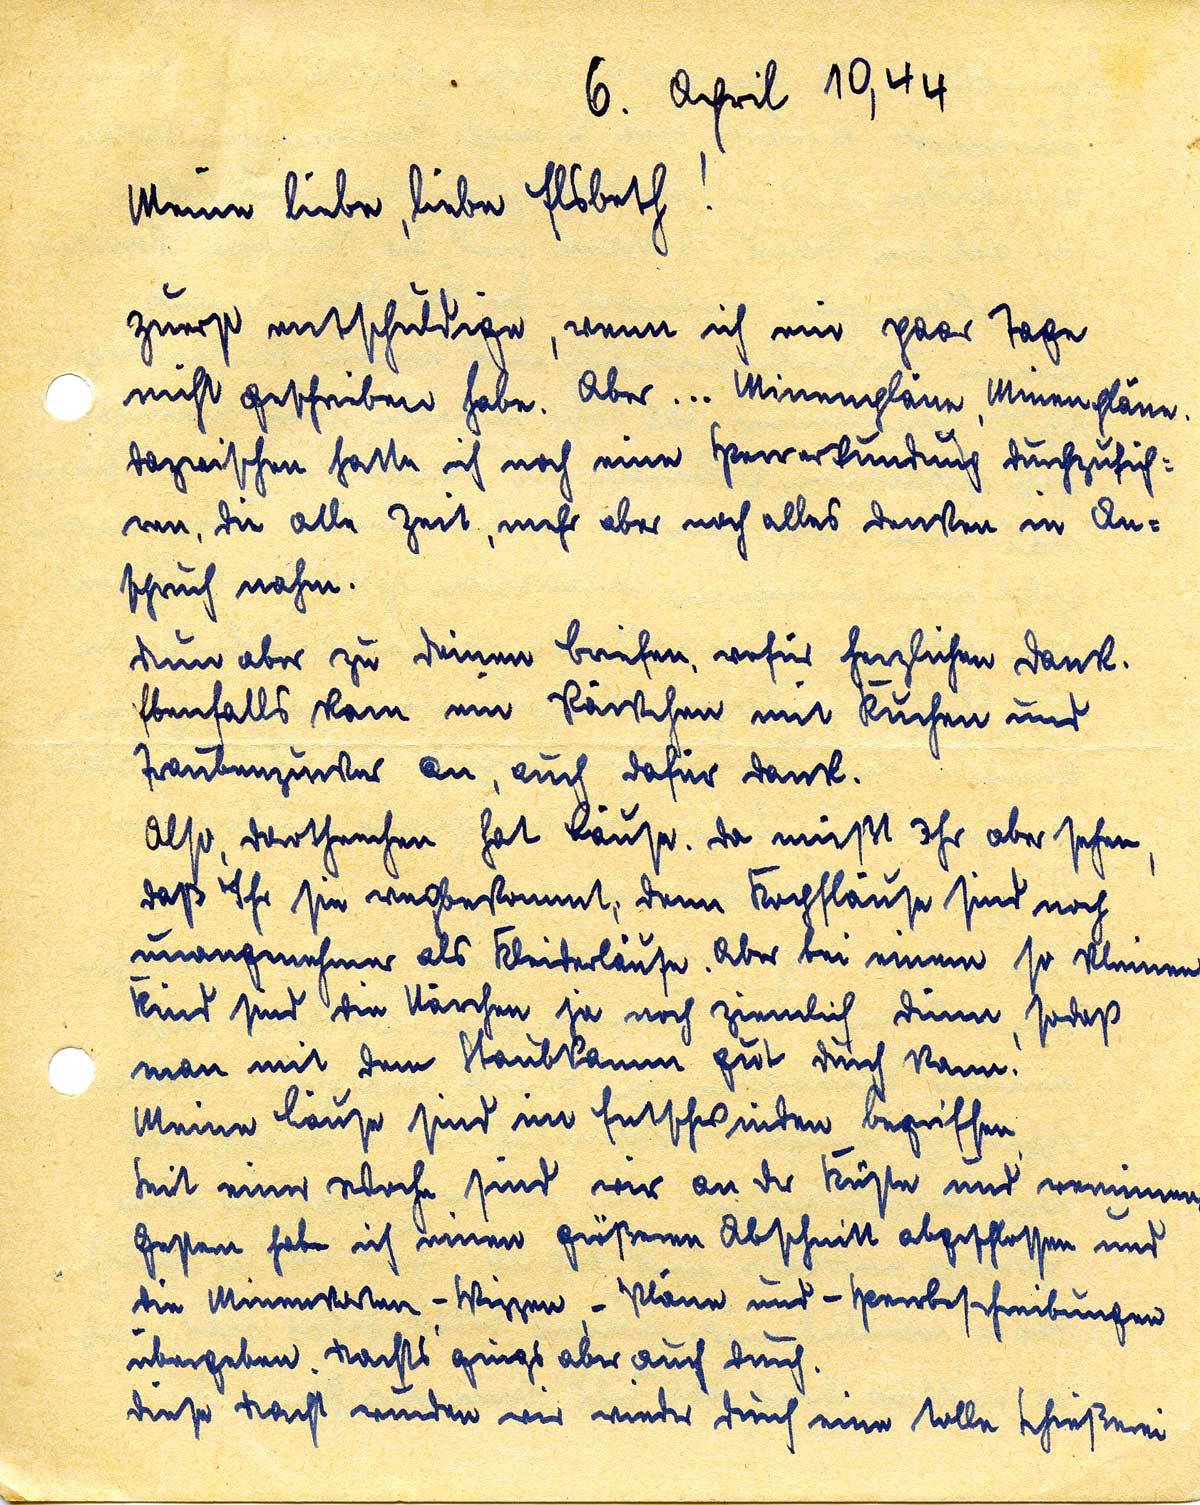 6. April 19,44
Meine liebe, liebe Elsbeth!
Zuerst entschuldige, wenn ich ein paar Tage
nicht geschrieben habe. Aber ... Minenpläne, Minenpläne.
Dazwischen hatte ich noch eine Sperrerkundung durchzufüh=
ren, die alle Zeit, mehr aber noch alles Denken in An=
spruch nahm.
Nun aber zu Deinen Briefen, wofür herzlichen Dank.
Ebenfalls kam ein Päckchen mit Kuchen und
Traubenzucker an, auch dafür Dank.
Also, Dorthenchen hat Läuse. Da müßt Ihr aber sehen,
daß Ihr sie wegbekommt, denn Kopfläuse sind noch
unangenehmer als Kleiderläuse. Aber bei einem so kleinen
Kind sind die Härchen ja noch ziemlich dünn, sodaß
man mit dem Staubkamm gut durch kann.
Meine Läuse sind im Entschwinden begriffen.
Seit einer Woche sind wir an der Küste und verminen.
Gestern habe ich einen größeren Abschnitt abgeschlossen und
die Minenkarten, -Skizzen, -Pläne und -Sperrbeschreibungen
übergeben. Nachts gings aber auch durch.
Diese Nacht wurden wir wieder durch eine tolle Schießerei